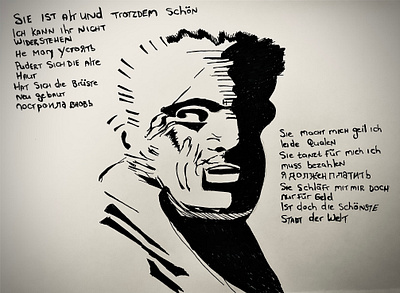 Sie ist alt und trotzdem schön
Ich kann ihr nicht
widerstehen
Не могу устоять
Pudert sich die alte
Haut
Hat sich die Brüste
neu gebaut
построила вновь
Sie macht mich geil ich
leide Qualen
Sie tanzt für mich ich
muss bezahlen
Я должен платить
Sie schläft mit mir doch
nur für Geld
Ist doch die schönste
Stadt der Welt